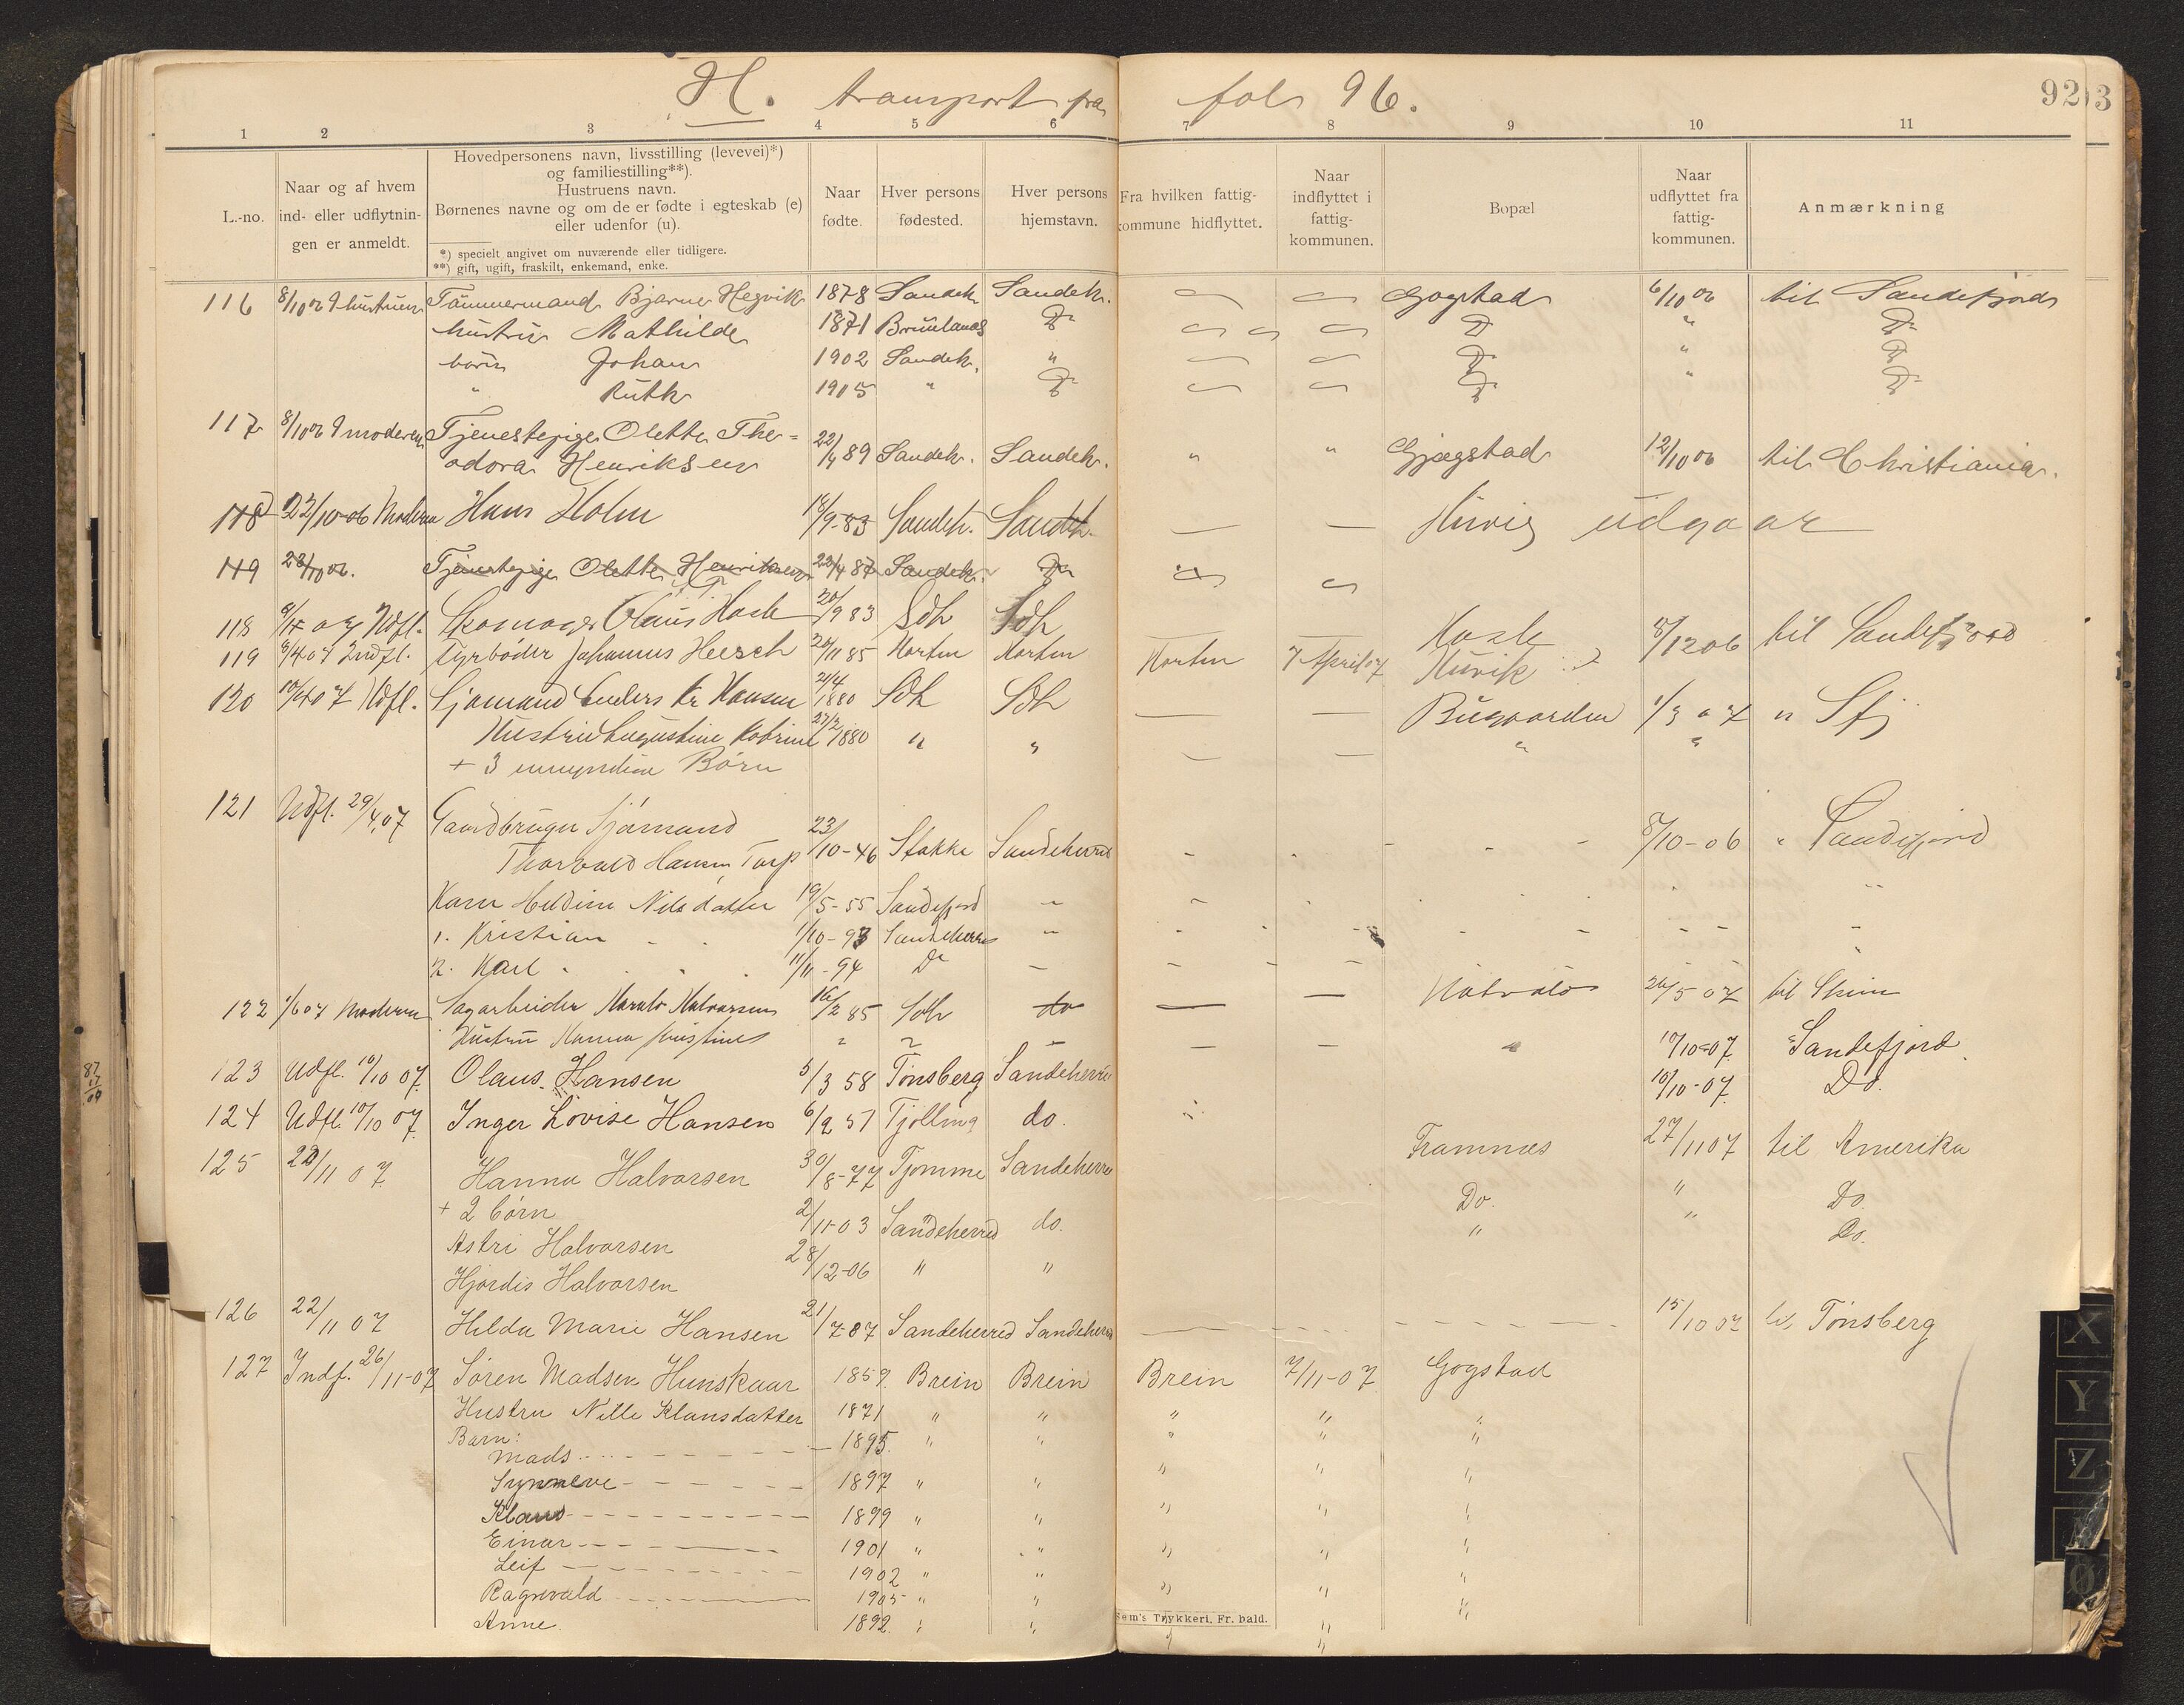 H. transport fra fol 96.
92
3
1 2 3 4 5 6 7 8 9 10 11
L.-no.
Naar og af hvem ind- eller udflytnin- gen er anmeldt.
Hovedpersonens navn, livsstilling (levevei)*)
og familiestilling**).
Hustruens navn.
Børnenes navne og om de er fødte i egteskab (e)
eller udenfor (u).
*) specielt angivet om nuværende eller tidligere.
**) gift, ugift, fraskilt, enkemand, enke.
Naar fødte.
Hver persons fødested.
Hver persons hjemstavn.
Fra hvilken fattig- kommune hidflyttet.
Naar indflyttet i fattig- kommunen.
Bopæl
Naar udflyttet fra fattig- kommunen.
Anmærkning
116 8/10 06 hustruen Tømmermand Bjarne Hegvik 1878 Sandeh. Sandeh. Gogstad 6/10 06 til Sandefjord
hustru Mathilde 1871 Brunlanæs Do Do " Do
barn Johan 1902 Sandeh. " Do " Do
" Ruth 1905 " Do Do " Do
117 8/10 06 moderen Tjenestepige Olette The-
odora Henriksen 22/4 89 Sandeh. Sandeh. " " Gjøgstad 12/10 06 til Christiania.
118 22/10-06 Moderen Hans Holm 18/9-83 Sandeh. Sandeh. — — Huvig udgaar
119 28/10 06. Tjenestepige Olette Henriksen 22/4 87 Sandeh. Do
118 Udfl. Skomager Olaus Hasle 20/9 83 Sdh Sdh Hasle 8/12 06 til Sandefjord
119 9/4 07 Indfl. Fyrbøder Johannes Heesch 24/11 85 Horten Horten Horten 7 April 07 Huvik
120 Udfl. Sjømand Anders Kr Hansen 24/4 1880 Sdh Sdh — — Bugaarden 1/3 07 " Sfj
Hustru Augustine Katrine 27/2 1880 " " — — " "
+ 3 umyndige Børn
121 Udfl. 29/4 07 Gaardbruger Sjømand
Thorvald Hansen Torp 23/10-46 Stokke Sandeherred 8/10-06 " Sandefjord
Karen Heldine Nilsdatter 19/5-55 Sandefjord
1. Kristian 1/10-93 Sandeherred
2. Karl 11/11-94 Do
122 1/6 07 Moderen Sagarbeider Harald Halvorsen 16/2 85 Sdh do — — 26/5 07 til Skien
Hustru Hanna
123 Udfl. 10/10 07. Olaus Hansen 5/3 58 Tønsberg Sandeherred 10/10-07. Sandefjord
124 Udfl. 10/10 07. Inger Lovise Hansen 6/2 57 Tjølling do. 10/10-07. Do.
125 22/11 07. Hanna Halvorsen 30/8-77 Tjømme Sandeherred Framnæs 27/11 07 til Amerika
+ 2 børn Do. " Do.
Astri Halvorsen 2/11-03 Sandeherred do. " " Do.
Hjørdis Halvorsen 28/12-06 " "
126 22/11 07 Hilda Marie Hansen 21/7-87 Sandeherred Sandeherred 15/10 07 Tønsberg
127 Indf. 26/11-07 Søren Madsen Hunskaar 1859. Brein Brein Brein 7/11-07 Gogstad
Hustru Nille Klausdatter 1871 " " " " "
Barn:
Mads 1895. " " " " "
Synneve 1897 " " " " "
Klaus 1899 " " " " "
Einar 1901 " " " " "
Leif 1902 " " " " "
Ragnvald 1905 " " " " "
Anne. 1892. " " " "
Sem's Trykkeri, Fr. bald.
X
Y
Z
Ø